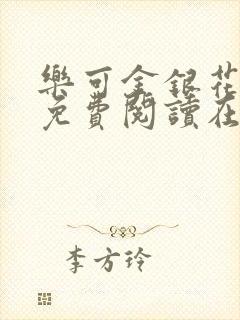 樂可金銀花
免費閱讀在
李方玲